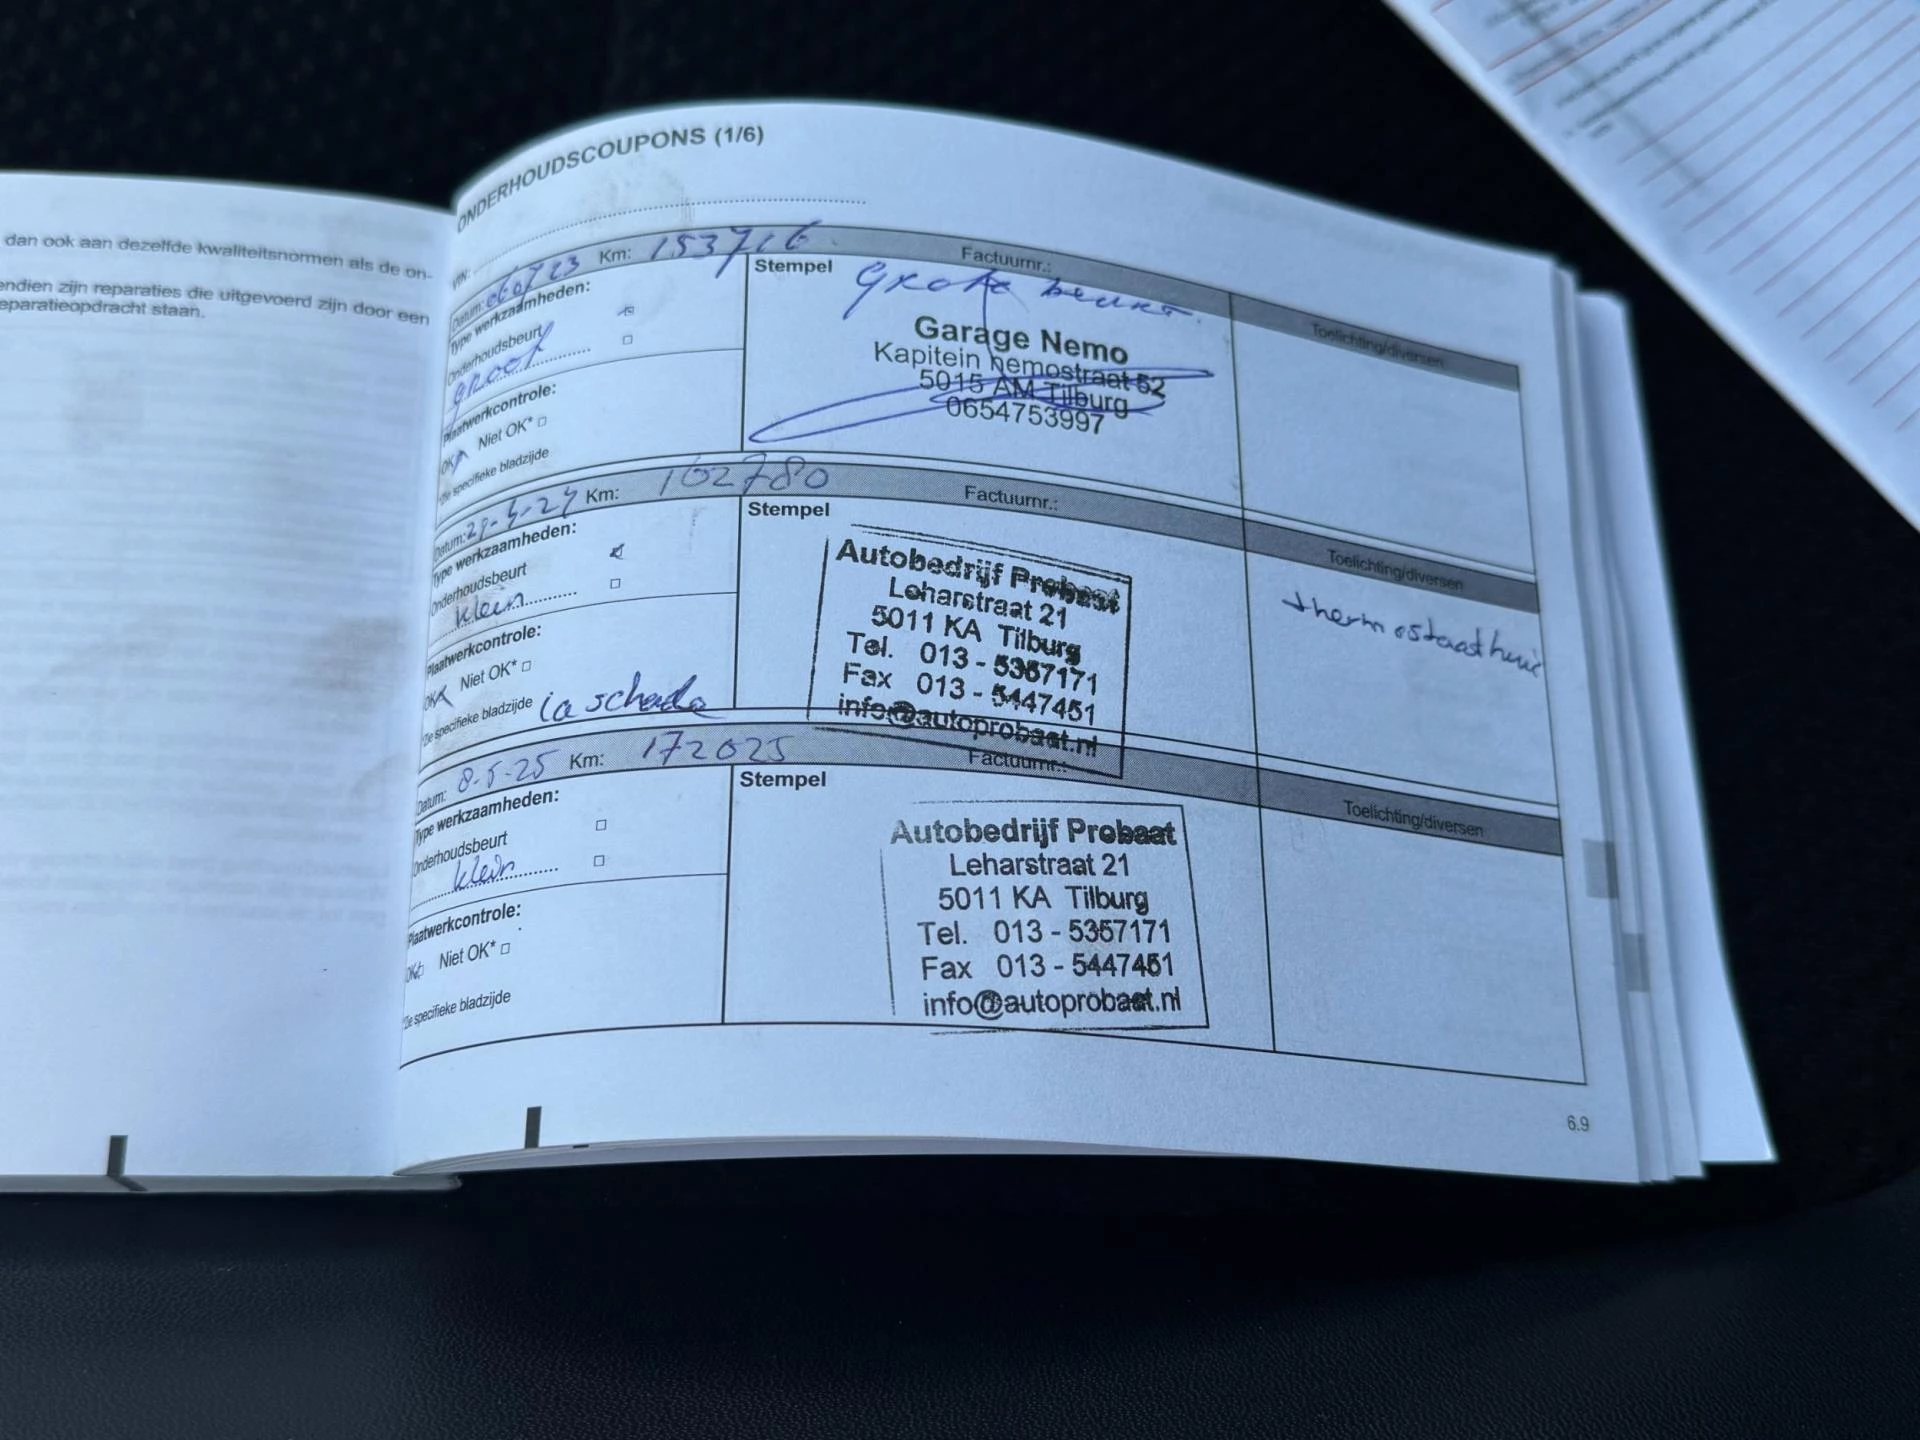 dan ook aan dezelfde kwaliteitsnormen als de on-
endien zijn reparaties die uitgevoerd zijn door een
eparatieopdracht staan.
ONDERHOUDSCOUPONS (1/6)
VIN:
Datum: 060723 Km: 153716 Factuurnr.:
Type werkzaamheden:
Onderhoudsbeurt
groot
Plaatwerkcontrole:
OK Niet OK*
*Zie specifieke bladzijde
Stempel Grote beurt
Garage Nemo
Kapitein nemostraat 52
5015 AM Tilburg
0654753997
Toelichting/diversen
Datum: 29-5-24 Km: 162780 Factuurnr.:
Type werkzaamheden:
Onderhoudsbeurt
klein
Plaatwerkcontrole:
OK Niet OK*
*Zie specifieke bladzijde schade
Stempel
Autobedrijf Probaat
Leharstraat 21
5011 KA Tilburg
Tel. 013 - 5357171
Fax 013 - 5447451
info@autoprobaat.nl
Toelichting/diversen
thermostaathuis
Datum: 8-5-25 Km: 172025 Factuurnr.:
Type werkzaamheden:
Onderhoudsbeurt
klein
Plaatwerkcontrole:
OK Niet OK*
*Zie specifieke bladzijde
Stempel
Autobedrijf Probaat
Leharstraat 21
5011 KA Tilburg
Tel. 013 - 5357171
Fax 013 - 5447451
info@autoprobaat.nl
Toelichting/diversen
6.9